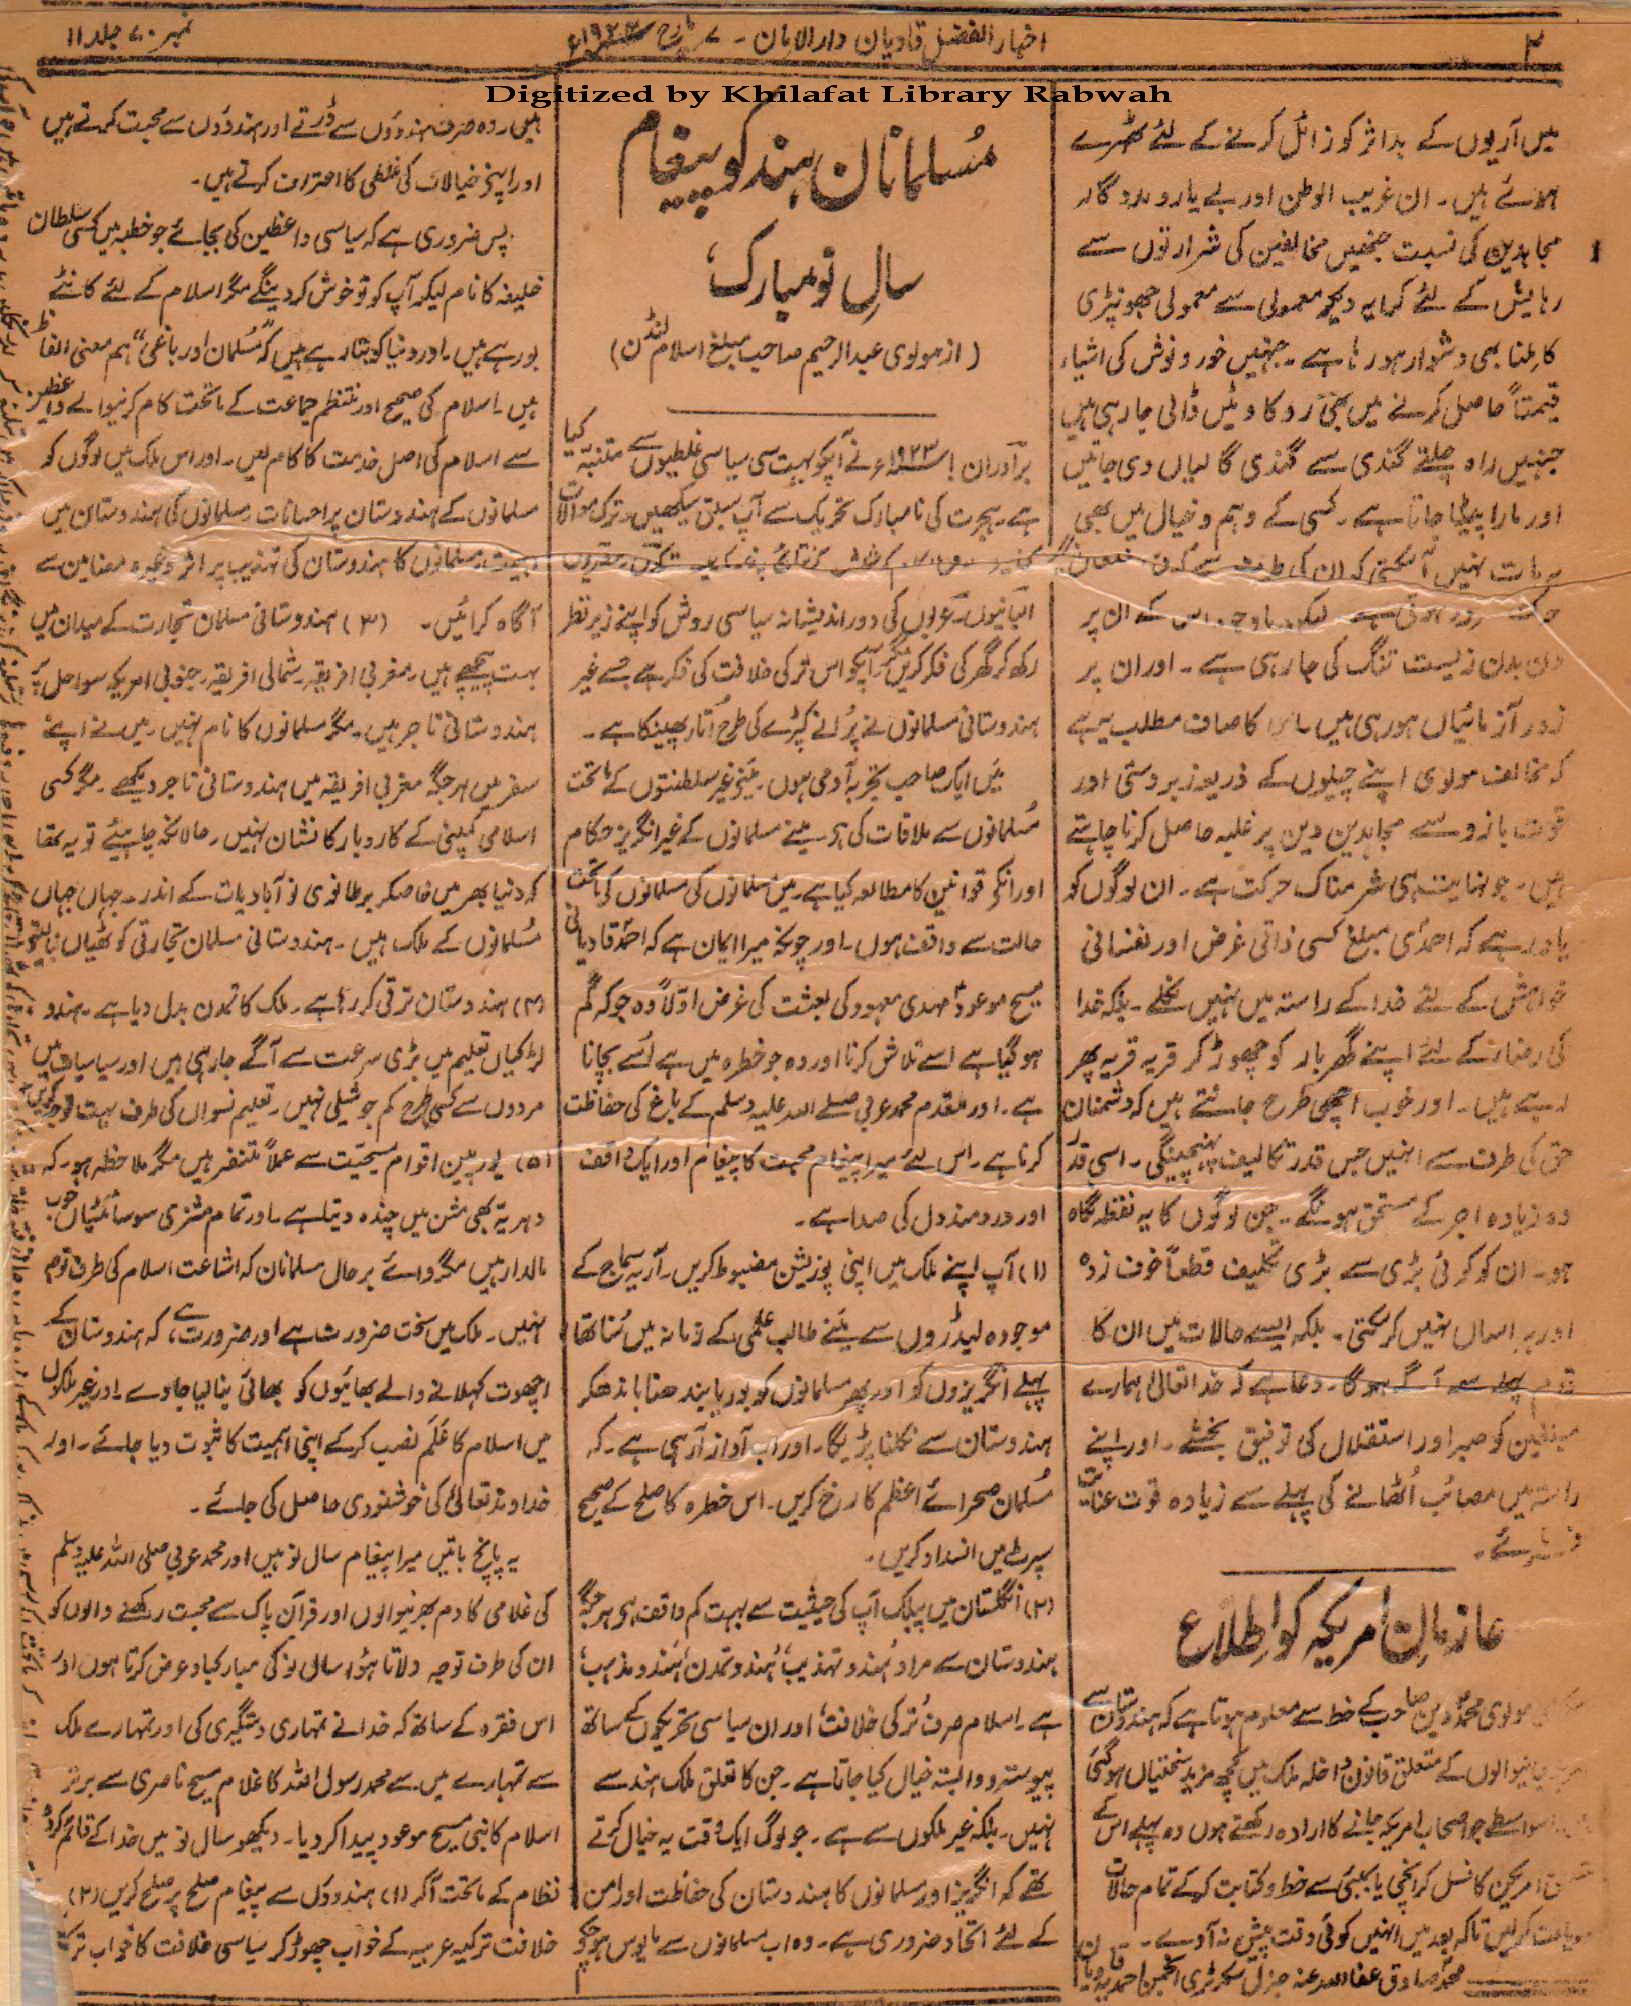 ۲
اخبار الفضل قادیان دارالامان - ۷ مارچ ۱۹۲۴ء
نمبر ۷۰ جلد ۱۱
Digitized by Khilafat Library Rabwah
میں آریوں کے بد اثر کو زائل کرنے کے لئے ٹھہرے
ہوئے ہیں۔ ان غریب الوطن اور بے یار و مددگار
مجاہدین کی نسبت جنھیں مخالفین کی شرارتوں سے
رہائش کے لئے کرایہ دیکر معمولی سے معمولی جھونپڑی
کا ملنا بھی دشوار ہو رہا ہے۔ جنہیں خورونوش کی اشیاء
قیمتاً حاصل کرنے میں بھی روکاوٹیں ڈالی جا رہی ہیں
جنہیں راہ چلتے گندی سے گندی گالیاں دی جاتیں
اور مارا پیٹا جاتا ہے۔ کسی کے وہم و خیال میں بھی
یہ بات نہیں آسکتی کہ ان کی طرف سے کوئی
لیکن باوجود اس کے ان پر
دن بدن زیست تنگ کی جا رہی ہے۔ اور ان پر
زور آزمائیاں ہو رہی ہیں۔ اس کا صاف مطلب یہ ہے
کہ مخالف مولوی اپنے چیلوں کے ذریعہ زبردستی اور
قوت بازو سے مجاہدین دین پر غلبہ حاصل کرنا چاہتے
ہیں۔ جو نہایت ہی شرمناک حرکت ہے۔ ان لوگوں کو
یاد رہے کہ احمدی مبلغ کسی ذاتی غرض اور نفسانی
خواہش کے لئے خدا کے راستہ میں نہیں نکلے۔ بلکہ خدا
کی رضا کے لئے اپنے گھر بار کو چھوڑ کر قریہ قریہ پھر
رہے ہیں۔ اور خوب اچھی طرح جانتے ہیں کہ دشمنان
حق کی طرف سے انہیں جس قدر تکالیف پہنچینگی۔ اسی قدر
وہ زیادہ اجر کے مستحق ہونگے۔ جن لوگوں کا یہ نقطہ نگاہ
ہو۔ ان کو کوئی بڑی سے بڑی تکلیف قطعاً خوف زدہ
اور ہراساں نہیں کر سکتی۔ بلکہ ایسے حالات میں ان کا
قدم پہلے سے آگے ہوگا۔ دعا ہے کہ خدا تعالیٰ ہمارے
مبلغین کو صبر اور استقلال کی توفیق بخشے۔ اور اپنے
راستہ میں مصائب اُٹھانے کی پہلے سے زیادہ قوت عنایت
فرمائے۔
عازمانِ امریکہ کو اطلاع
مولوی محمد دین صاحب کے خط سے معلوم ہوتا ہے کہ ہندوستان سے
جانیوالوں کے متعلق قانون داخلہ ملک میں کچھ مزید سختیاں ہو گئی
اسواسطے جو اصحاب امریکہ جانے کا ارادہ رکھتے ہوں وہ پہلے اس کے
امریکن کانسل کراچی یا بمبئی سے خط و کتابت کرکے تمام حالات
دریافت کر لیں تاکہ بعد میں انہیں کوئی دقت پیش نہ آوے۔
محمد صادق عفا اللہ عنہ جنرل سکرٹری انجمن احمدیہ قادیان
مُسلمانان ہند کو پیغام
سالِ نو مبارک
(از مولوی عبدالرحیم صاحب مبلغ اسلام لنڈن)
برادران! ۱۹۲۳ء نے آپکو بہت سی سیاسی غلطیوں سے متنبہ کیا
ہے۔ ہجرت کی نامبارک تحریک سے آپ سبق سیکھیں۔ ترک موالات
ترکوں۔ مصریوں
البانیوں۔ عربوں کی دور اندیشانہ سیاسی روش کو اپنے زیر نظر
رکھ کر گھر کی فکر کریں۔ مگر آپکو اس ترکی خلافت کی فکر ہے جسے غیر
ہندوستانی مسلمانوں نے پُرانے کپڑے کی طرح اُتار پھینکا ہے۔
میں ایک صاحب تجربہ آدمی ہوں۔ مینے غیر سلطنتوں کے ماتحت
مُسلمانوں سے ملاقات کی ہے۔ مینے مسلمانوں کے غیر انگریز حکام
اور انکے قوانین کا مطالعہ کیا ہے۔ میں مسلمانوں کی مسلمانوں کے ماتحت
حالت سے واقف ہوں۔ اور چونکہ میرا ایمان ہے کہ احمد قادیانی
مسیح موعود مہدی معہود کی بعثت کی غرض اولاً وہ جو کہ گم
ہو گیا ہے اسے تلاش کرنا اور وہ جو خطرہ میں ہے اُسے بچانا
ہے۔ اور مقدم محمد عربی صلے اللہ علیہ وسلم کے باغ کی حفاظت
کرنا ہے۔ اس لئے میرا پیغام محبت کا پیغام اور ایک واقف
اور دردمند دل کی صدا ہے۔
(۱) آپ اپنے ملک میں اپنی پوزیشن مضبوط کریں۔ آریہ سماج کے
موجودہ لیڈروں سے مینے طالب علمی کے زمانہ میں سُنا تھا
پہلے انگریزوں کو اور پھر مسلمانوں کو بوریا بندھنا باندھکر
ہندوستان سے نکلنا پڑیگا۔ اور اب آواز آرہی ہے۔ کہ
مُسلمان صحرائے اعظم کا رخ کریں۔ اس خطرہ کا صلح کے صحیح
سپرٹ میں انسداد کریں۔
(۲) انگلستان میں پبلک آپ کی حیثیت سے بہت کم واقف ہے۔ ہر جگہ
ہندوستان سے مراد ہندو تہذیب، ہندو تمدن، ہندو مذہب،
ہے۔ اسلام صرف تُرکی خلافت، اور ان سیاسی تحریکوں کے ساتھ
پیوستہ و وابستہ خیال کیا جاتا ہے۔ جن کا تعلق ملک ہند سے
نہیں۔ بلکہ غیر ملکوں سے ہے۔ جو لوگ ایک وقت یہ خیال کرتے
تھے کہ انگریز اور مسلمانوں کا ہندوستان کی حفاظت اور امن
کے لئے اتحاد ضروری ہے۔ وہ اب مسلمانوں سے مایوس ہو چکے
ہیں۔ وہ صرف ہندوؤں سے ڈرتے اور ہندوؤں سے محبت کرتے ہیں
اور اپنے خیالات کی غلطی کا اعتراف کرتے ہیں۔
پس ضروری ہے کہ سیاسی واعظین کی بجائے جو خطبہ میں کسی سلطان
خلیفہ کا نام لیکر آپ کو تو خوش کر دینگے مگر اسلام کے لئے کانٹے
بو رہے ہیں۔ اور دنیا کو بتا رہے ہیں کہ "مُسلمان اور باغی" ہم معنی الفاظ
ہیں۔ اسلام کی صحیح اور منتظم جماعت کے ماتحت کام کرنیوالے واعظین
سے اسلام کی اصل خدمت کا کام لیں۔ اور اس ملک میں لوگوں کو
مسلمانوں کے ہندوستان پر احسانات، مسلمانوں کی ہندوستان میں
مسلمانوں کا ہندوستان کی تہذیب پر اثر وغیرہ مضامین سے
آگاہ کرائیں۔ (۳) ہندوستانی مسلمان تجارت کے میدان میں
بہت پیچھے ہیں۔ مغربی افریقہ۔ شمالی افریقہ۔ جنوبی امریکہ سواحل پر
ہندوستانی تاجر ہیں۔ مگر مسلمانوں کا نام نہیں۔ میں نے اپنے
سفر میں ہر جگہ مغربی افریقہ میں ہندوستانی تاجر دیکھے۔ مگر کسی
اسلامی کمپنی کے کاروبار کا نشان نہیں۔ حالانکہ چاہیئے تو یہ تھا
کہ دنیا بھر میں خاصکر برطانوی نوآبادیات کے اندر۔ جہاں جہاں
مُسلمانوں کے ملک ہیں۔ ہندوستانی مسلمان تجارتی کوٹھیاں بناتے
(۴) ہندوستان ترقی کر رہا ہے۔ ملک کا تمدن بدل دیا ہے۔ ہندو
لڑکیاں تعلیم میں بڑی سرعت سے آگے جا رہی ہیں اور سیاسیات میں
مردوں سے کسی طرح کم جوشیلی نہیں۔ تعلیم نسواں کی طرف بہت توجہ کریں
(۵) یورپین اقوام مسیحیت سے عملاً متنفر ہیں مگر ملاحظہ ہو۔ کہ
دہریہ بھی مشن میں چندہ دیتا ہے۔ اور تمام مشنری سوسائٹیاں خوب
مالدار ہیں مگر وائے برحال مسلمانان کہ اشاعت اسلام کی طرف توجہ
نہیں۔ ملک میں سخت ضرورت ہے اور ضرورت ہے، کہ ہندوستان کے
اچھوت کہلانے والے بھائیوں کو بھائی بنا لیا جاوے۔ اور غیر ملکوں
میں اسلام کا عَلَم نصب کرکے اپنی اہمیت کا ثبوت دیا جائے۔ اور
خداوند تعالیٰ کی خوشنودی حاصل کی جائے۔
یہ پانچ باتیں میرا پیغام سال نو ہیں اور محمد عربی صلی اللہ علیہ وسلم
کی غلامی کا دم بھرنیوالوں اور قرآن پاک سے محبت رکھنے والوں کو
ان کی طرف توجہ دلاتا ہوا سال نو کی مبارکباد عرض کرتا ہوں اور
اس فقرہ کے ساتھ کہ خدا نے تمہاری دستگیری کی اور تمہارے ملک
سے تمہارے میں سے محمد رسول اللہ کا غلام مسیح ناصری سے برتر
اسلام کا نبی مسیح موعود پیدا کر دیا۔ دیکھو سال نو میں خدا کے قائم کردہ
نظام کے ماتحت آکر (۱) ہندوؤں سے پیغام صلح پر صلح کریں (۲)
خلافت ترکیہ عربیہ کے خواب چھوڑ کر سیاسی خلافت کا خواب ترک